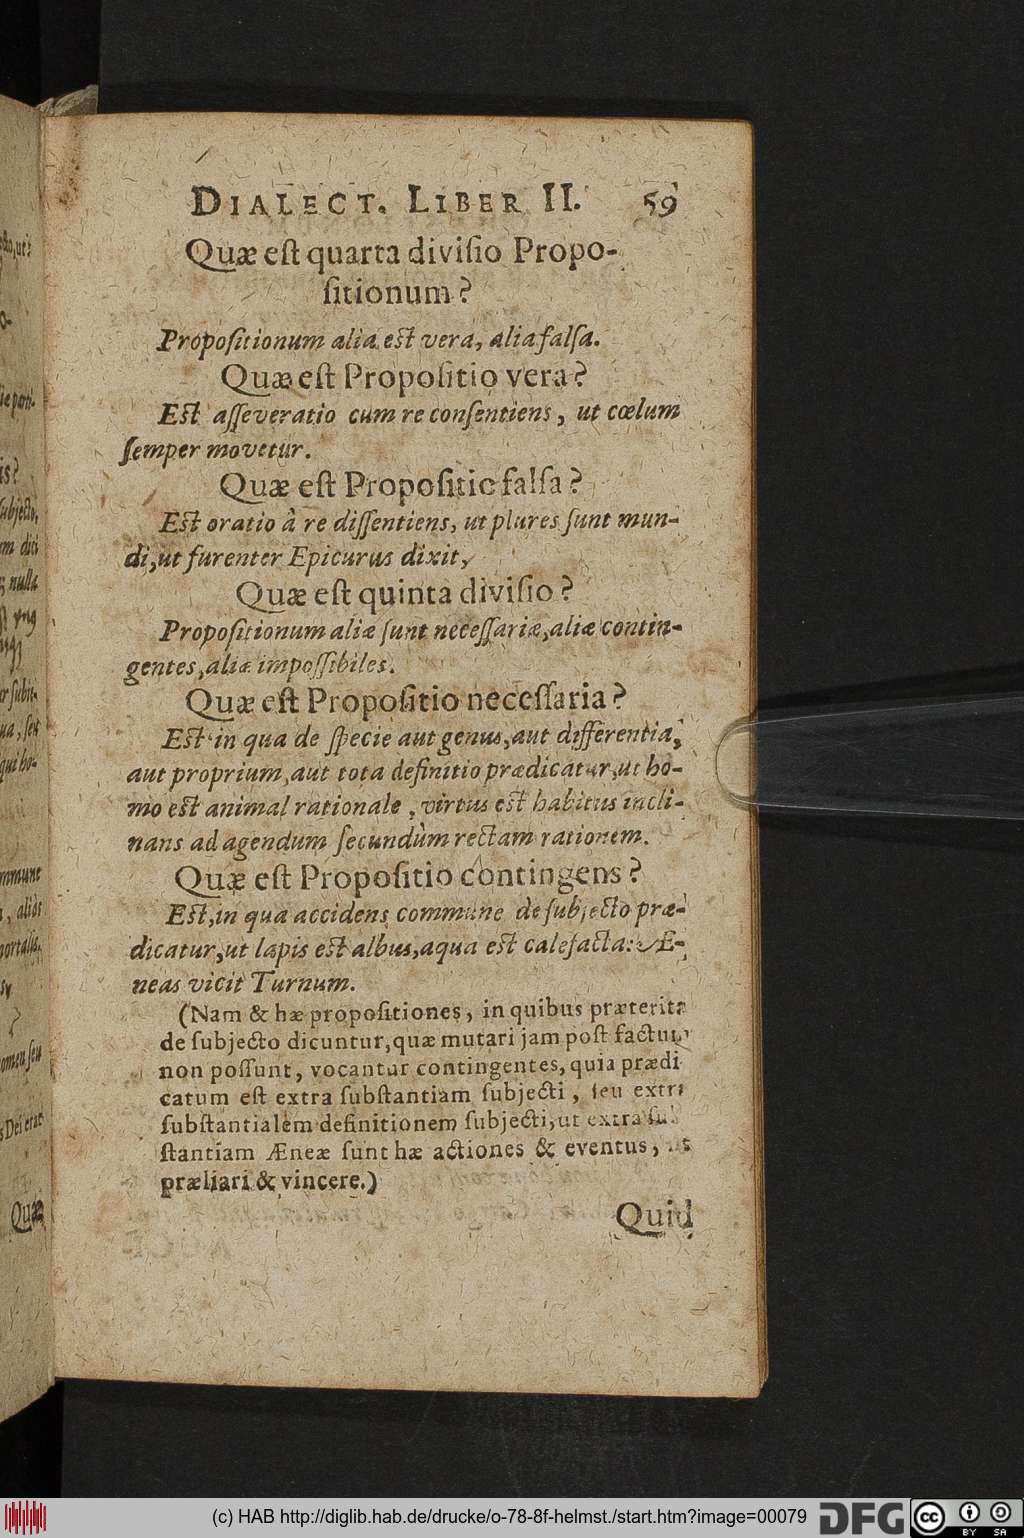 DIALECT. LIBER II. 59
Quæ eſt quarta diviſio Propo-
ſitionum?
Propoſitionum alia eſt vera, alia falſa.
Quæ eſt Propoſitio vera?
Eſt aſſeveratio cum re conſentiens, ut cœlum
ſemper movetur.
Quæ eſt Propoſitio falſa?
Eſt oratio â re diſſentiens, ut plures ſunt mun-
di, ut furenter Epicurus dixit,
Quæ eſt quinta diviſio?
Propoſitionum aliæ ſunt neceſſariæ, aliæ contin-
gentes, aliæ impoſſibiles.
Quæ eſt Propoſitio neceſſaria?
Eſt in qua de ſpecie aut genus, aut differentia,
aut proprium, aut tota definitio prædicatur, ut ho-
mo eſt animal rationale, virtus eſt habitus incli-
nans ad agendum ſecundùm rectam rationem.
Quæ eſt Propoſitio contingens?
Eſt, in qua accidens commune de ſubjecto præ-
dicatur, ut lapis eſt albus, aqua eſt calefacta: Æ-
neas vicit Turnum.
(Nam & hæ propoſitiones, in quibus præterita
de ſubjecto dicuntur, quæ mutari jam poſt factum
non poſſunt, vocantur contingentes, quia prædi
catum eſt extra ſubſtantiam ſubjecti, ſeu extra
ſubſtantialem definitionem ſubjecti, ut extra ſub
ſtantiam Æneæ ſunt hæ actiones & eventus, ut
præliari & vincere.)
Quid
(c) HAB http://diglib.hab.de/drucke/o-78-8f-helmst./start.htm?image=00079
DFG
cc
BY SA